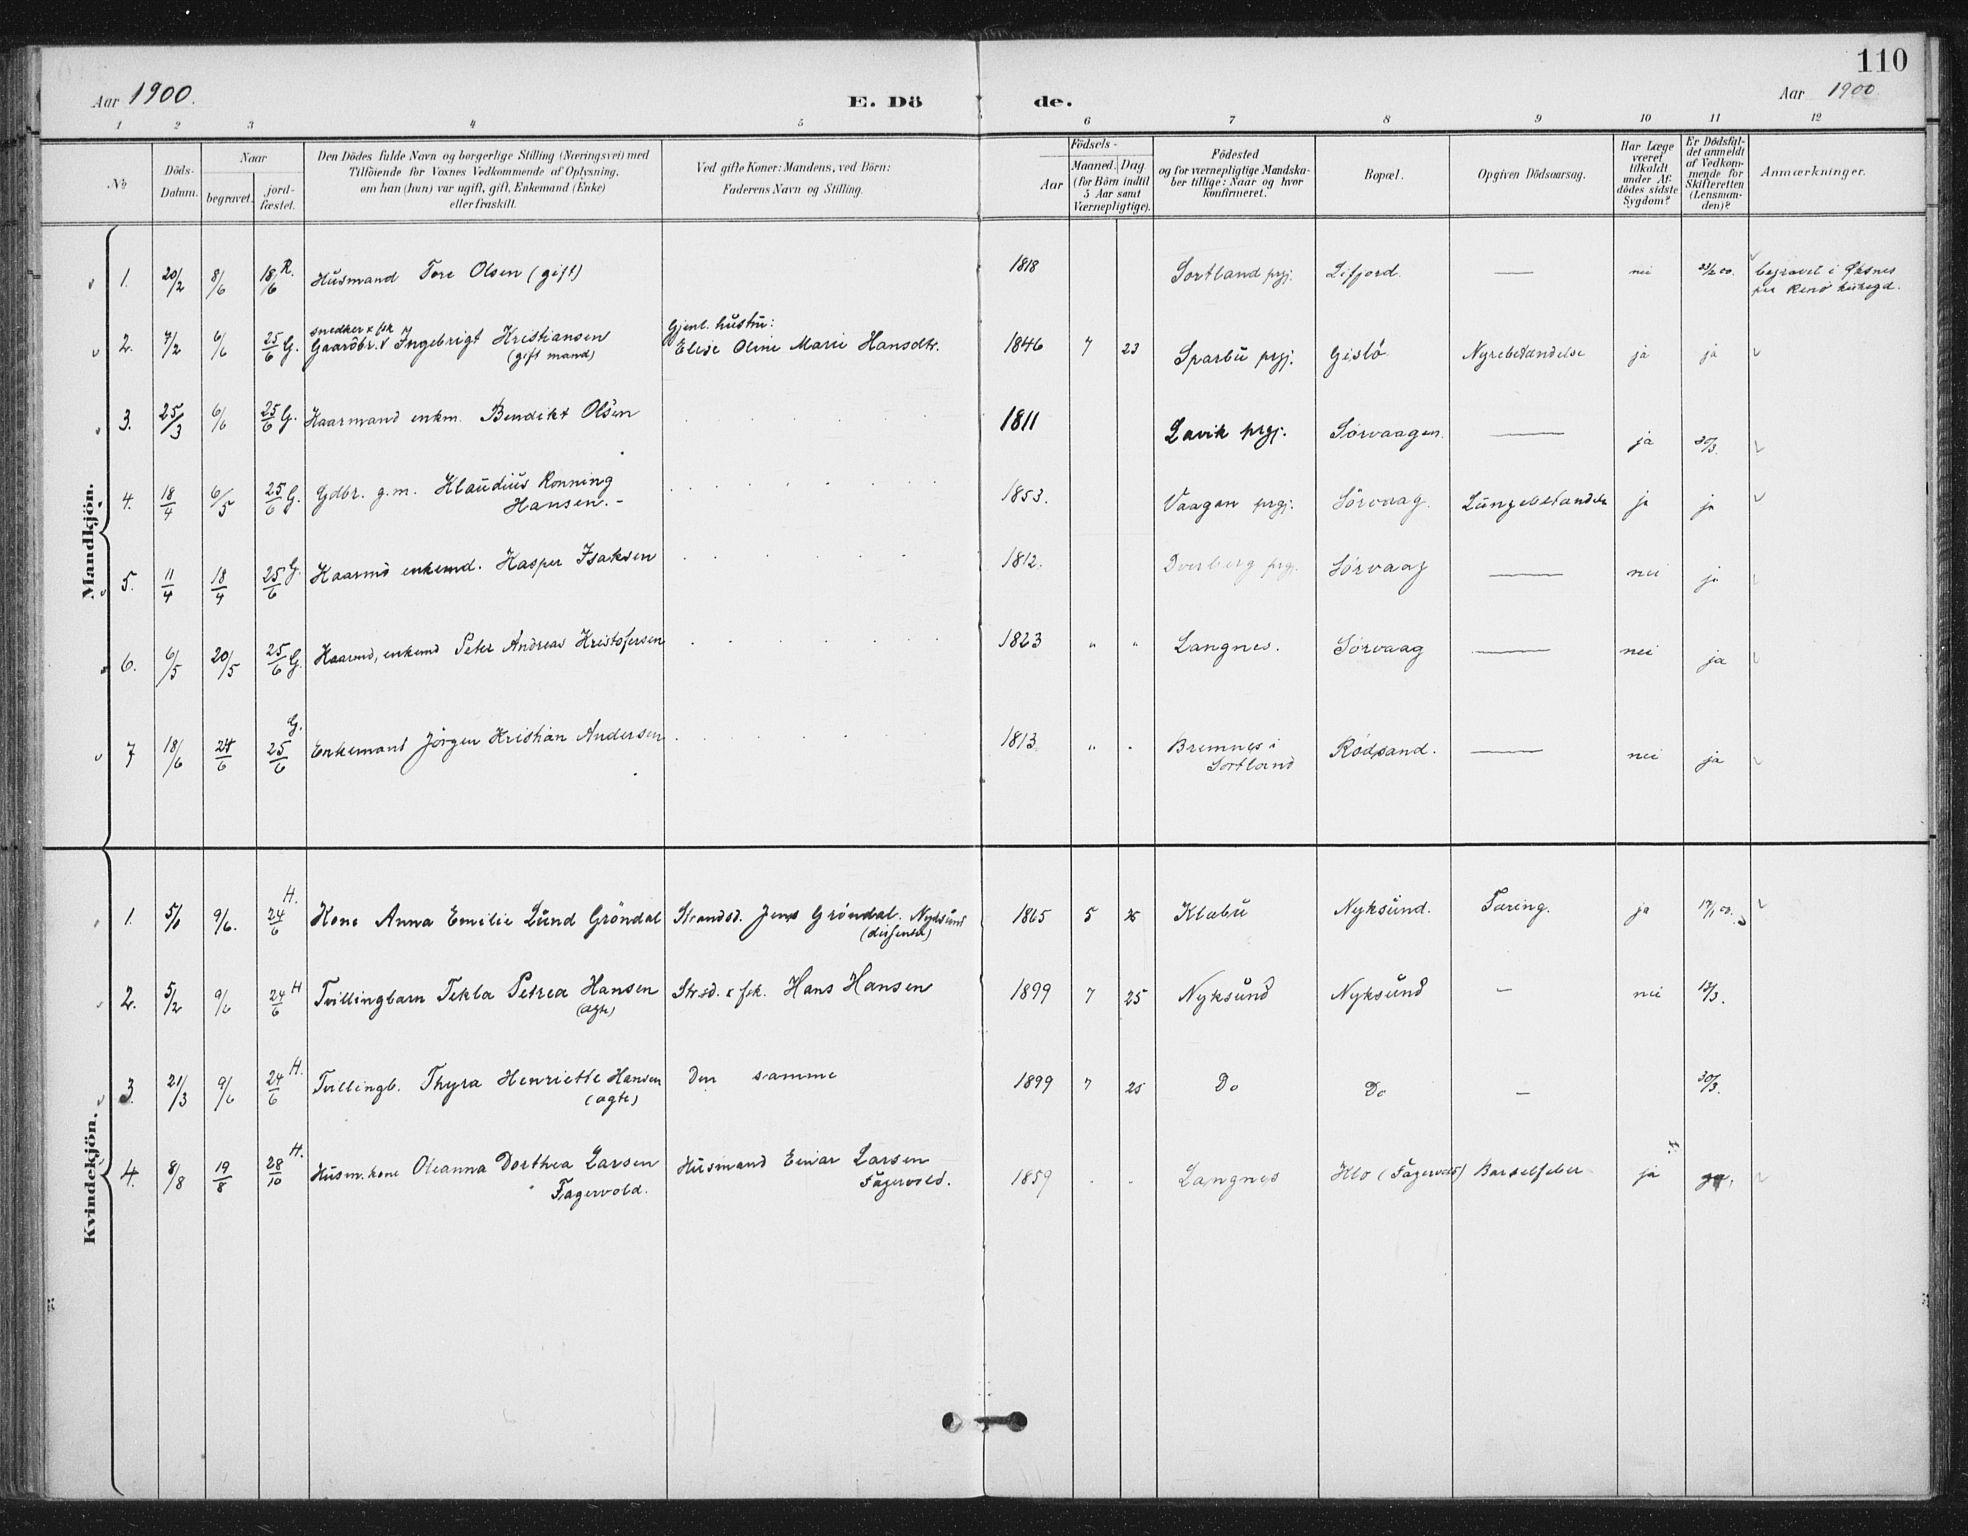 110
Aar 1900.
E. Döde.
Aar 1900
1 2 3 4 5 6 7 8 9 10 11 12
No
Döds-Datum.
Naar
begravet.
jord-fæstet.
Den Dödes fulde Navn og borgerlige Stilling (Næringsvei) med
Tilföiende for Voxnes Vedkommende af Oplysning,
om han (hun) var ugift, gift, Enkemand (Enke)
eller fraskilt.
Ved gifte Koner: Mandens, ved Börn:
Faderens Navn og Stilling.
Födsels-
Aar
Maaned. Dag
(for Börn indtil
5 Aar samt
Værnepligtige).
Födested
og for værnepligtige Mandska-
ber tillige: Naar og hvor
konfirmeret.
Bopæl.
Opgiven Dödsaarsag.
Har Læge
været
tilkaldt
under Af-
dödes sidste
Sygdom?
Er Dödsfal-
det anmeldt
af Vedkom-
mende for
Skifteretten
(Lensman-
den)?
Anmærkninger.
Mandkjön.
1. 20/2 8/6 18/6 R. Husmand Tore Olsen (gift) 1818 Sortland prgj. Lifjord. — nei 23/2 00. begravet i Øksnes
kirkegd.
2. 7/2 6/6 25/6 G. snedker & fsk
Gaardbr. Ingebrigt Kristiansen
(gift mand)
Gjenl. hustru:
Elise Oline Marie Hansdtr. 1846 7 23 Sparbu prgj. Gislö Nyrebetændelse ja ja
3. 25/3 6/6 25/6 G. Kaarmand enkm. Bendikt Olsen 1811 Lavik prgj. Sörvaagen. — ja 30/3.
4. 18/4 6/5 25/6 G. Gdbr. g.m. Klaudius Rönning
Hansen.- 1853. Vaagan prgj. Sörvaag. Lungebetændelse ja ja
5. 11/4 18/4 25/6 G. Kaarmd enkemd. Kasper Isaksen 1812. Dverberg prgj. Sörvaag — nei ja
6. 6/5 20/5 25/6 G. Kaarmd, enkemd Peter Andreas Kristofersen 1823 " " Langnes. Sörvaag — nei ja
7 18/6 24/6 25/6 G. Enkemand Jörgen Kristian Andersen 1813. " " Bremnes i
Sortland Rödsand. — nei ja
Kvindekjön.
1. 9/6. 24/6 H. Kone Anna Emilie Lund Gröndal Strandsd. Jens Gröndal. Nyksund
(dissenter) 1865 5 Klæbu Nyksund. Tæring. ja 17/1 00.
2. 5/2 9/6 24/6 H Tvillingbarn Tekla Petrea Hansen
(ægte) Strsd. & fsk. Hans Hansen 1899 7 25 Nyksund Nyksund — nei 13/3.
3. 21/3 9/6 24/6 H. Tvillingb. Thyra Henriette Hansen
(ægte) Den samme 1899 7 25 Do Do — 30/3.
4. 8/8 19/8 28/10 H. Husm. kone Oleanna Dorthea Larsen
Fagervold. Husmand Einar Larsen
Fagervold. 1859 Langnes Klo (Fagervold) Barselfeber ja